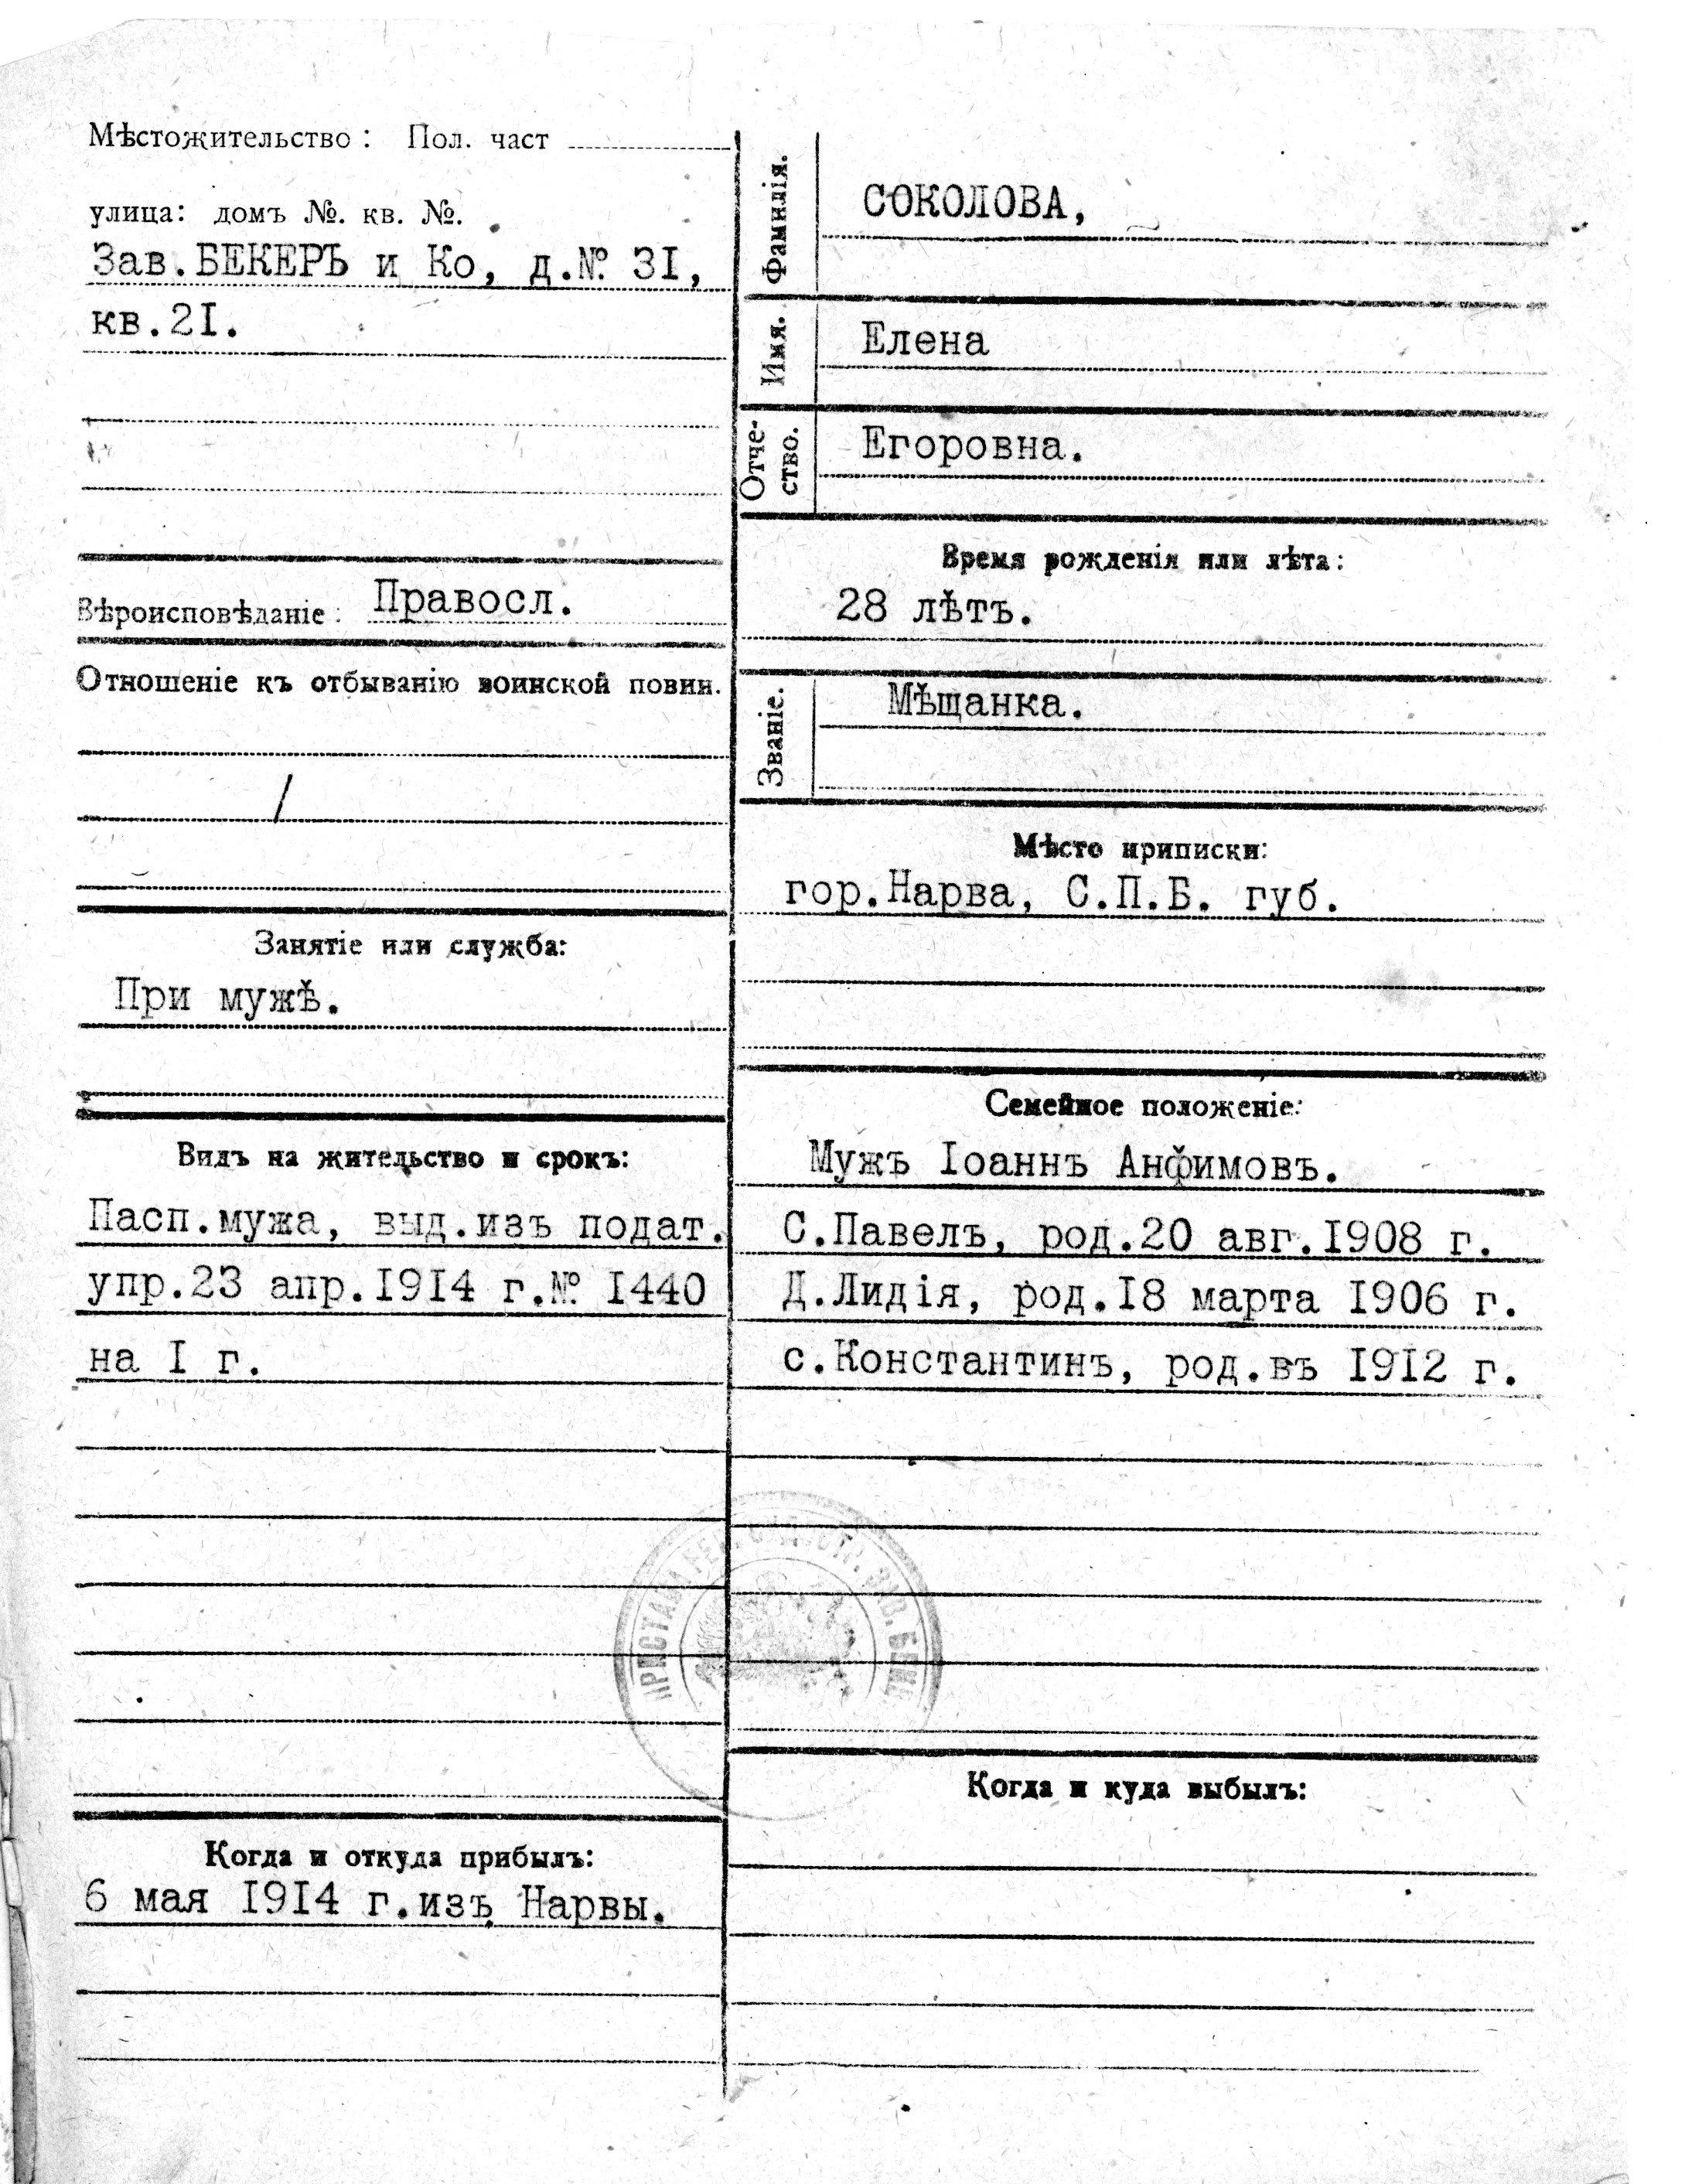 Мѣстожительство: Пол. част
улица: домъ №. кв. №.
Зав.БЕКЕРЪ и Ко, д.№ 3I,
кв.2I.
Вѣроисповѣданіе: Правосл.
Отношеніе къ отбыванію воинской повин.
Занятіе или служба:
При мужѣ.
Видъ на жительство и срокъ:
Пасп.мужа, выд.изъ подат.
упр.23 апр.I9I4 г.№ I440
на I г.
Когда и откуда прибылъ:
6 мая I9I4 г.изъ Нарвы.
Фамилія.
СОКОЛОВА,
Имя.
Елена
Отче-
ство.
Егоровна.
Время рожденія или лѣта:
28 лѣтъ.
Званіе.
Мѣщанка.
Мѣсто приписки:
гор.Нарва, С.П.Б. губ.
Семейное положеніе:
Мужъ Іоаннъ Анфимовъ.
С.Павелъ, род.20 авг.I908 г.
Д.Лидія, род.I8 марта I906 г.
с.Константинъ, род.въ I9I2 г.
Когда и куда выбылъ:
ПРИСТАВА